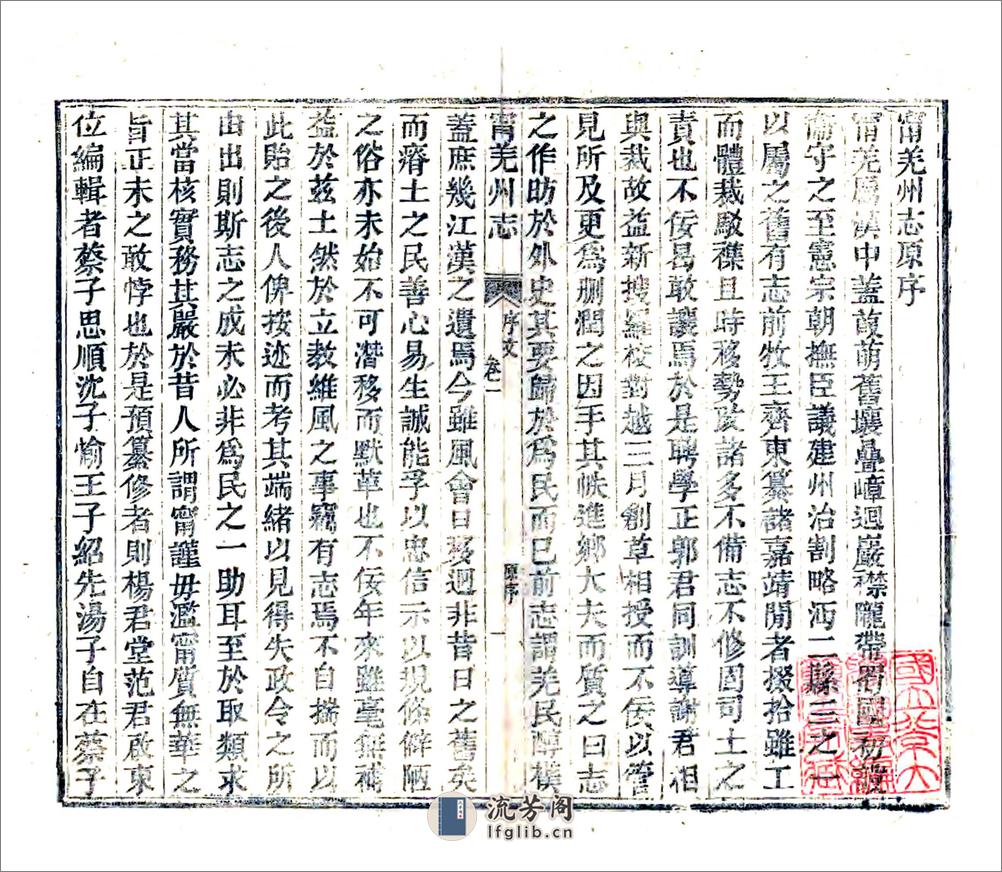 甯羌州志原序
甯羌屬漢中蓋葭萌舊壤疊嶂迴巖襟隴帶蜀國初設
衞守之至憲宗朝撫臣議建州治割略沔二縣三之一
以屬之舊有志前牧王齊東纂諸嘉靖閒者掇拾雖工
而體裁駁襍且時移勢改諸多不備志不修固司土之
責也不佞曷敢讓焉於是聘學正郭君同訓導謝君相
與裁故益新搜羅校對越三月創草相授而不佞以管
見所及更為刪潤之因手其帙進鄉大夫而質之曰志
之作昉於外史其要歸於為民而已前志謂羌民醇樸
甯羌州志
序文
卷一
原序
一
蓋庶幾江漢之遺焉今雖風會日移迥非昔日之舊矣
而瘠土之民善心易生誠能孚以忠信示以規條僻陋
之俗亦未始不可潛移而默革也不佞年來雖毫無裨
益於茲土然於立教維風之事竊有志焉不自揣而以
此貽之後人俾按迹而考其端緒以見得失政令之所
由出則斯志之成未必非為民之一助耳至於取類求
其當核實務其嚴於昔人所謂甯謹毋濫甯質無華之
旨正未之敢悖也於是預纂修者則楊君堂范君啟東
位編輯者蔡子思順沈子愉王子紹先湯子自在蔡子
流芳阁
lfglib.cn